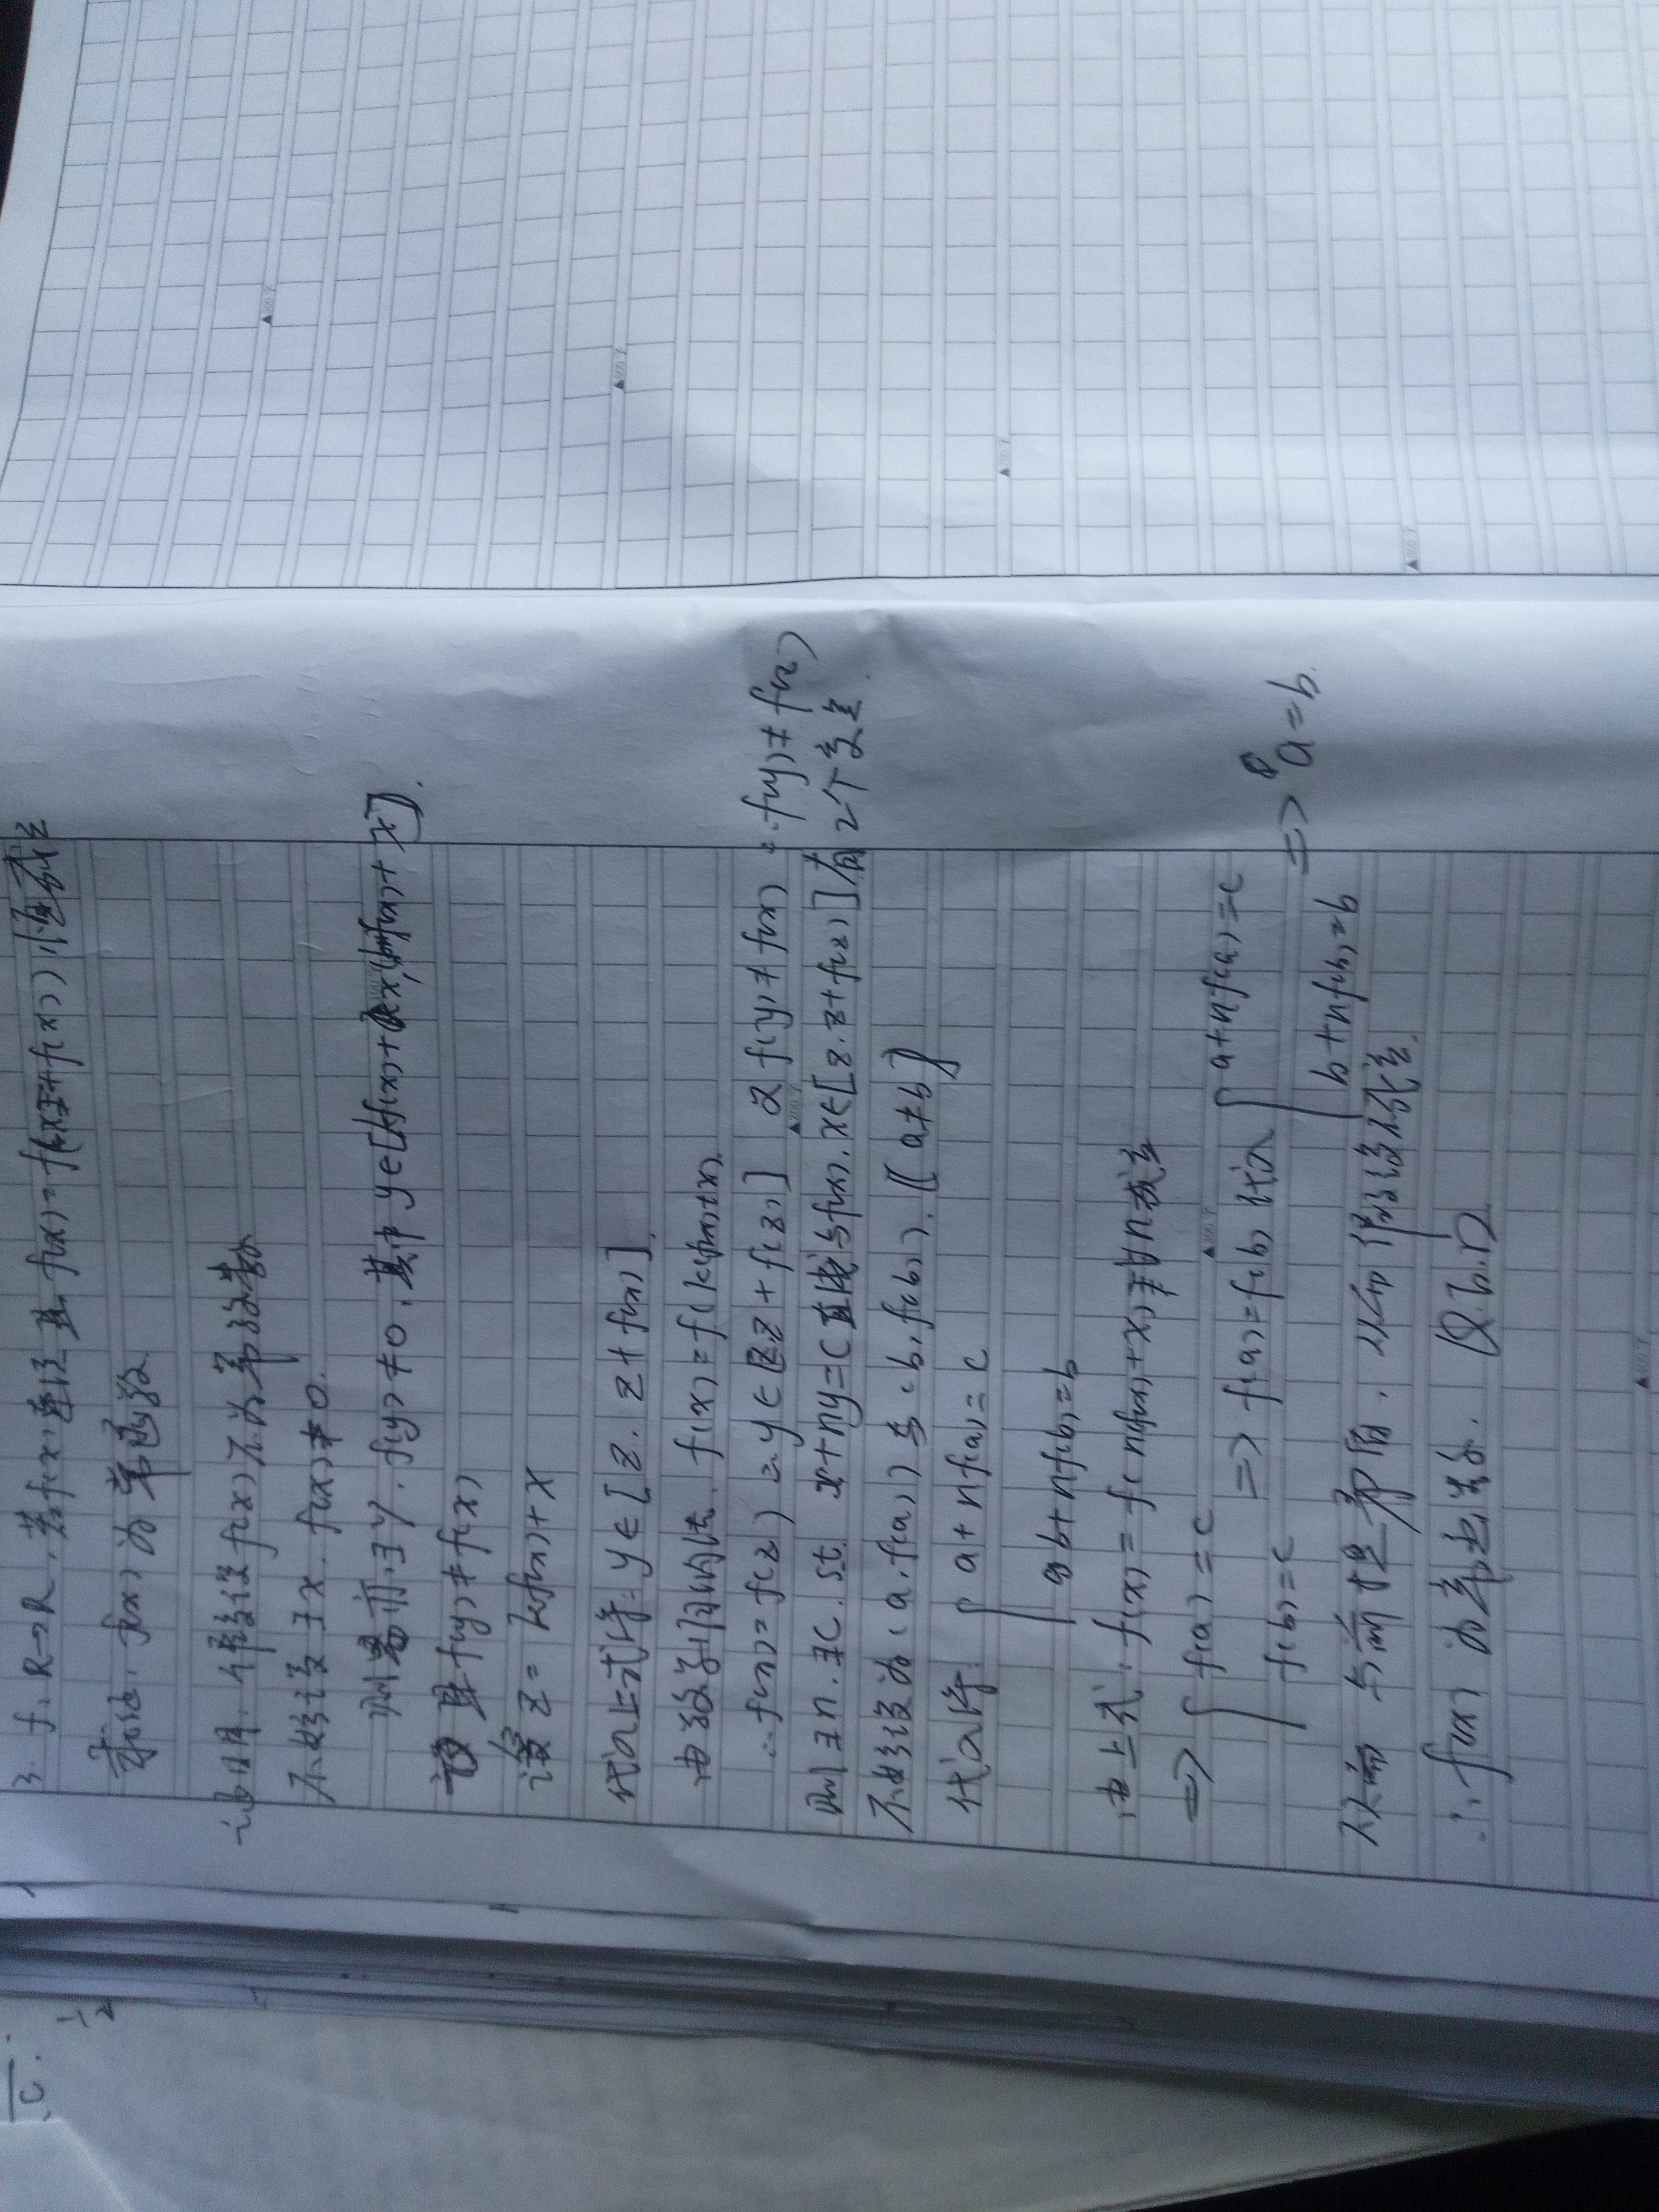 3. f: R→R, 若f(x)连续 且 f(x)=f(x+f(x))恒成立
求证: f(x)为常函数
证明: 不妨设f(x)不为常函数
不妨设∃x. f(x)≠0.
则 ∃y. f(y)≠0. 其中 y∈[kf(x)+x, f(x)+x].
且 f(y)≠f(x)
设 z=kf(x)+x
代入上式得: y∈[z. z+f(x)].
由数学归纳法. f(x)=f(kf(x)+x).
∴ f(x)=f(z) ∴ y∈[z.z+f(z)] 又f(y)≠f(x) ∴f(y)≠f(z)
则∃n.∃C. st. x+ny=C直线与f(x), x∈[z.z+f(z)]有2个交点.
不妨设为(a.f(a))与(b.f(b)). (a≠b)
代入得: a+nf(a)=c
b+nf(b)=b
由上式: f(x)=f(nf(x)+x)对∀n成立
⇒ f(a)=c
f(b)=c
⇒ f(a)=f(b) 代入
a+nf(a)=c
b+nf(b)=b
⇒ a=b.
与前提矛盾. 假设不成立.
∴ f(x)为常函数. Q.E.D